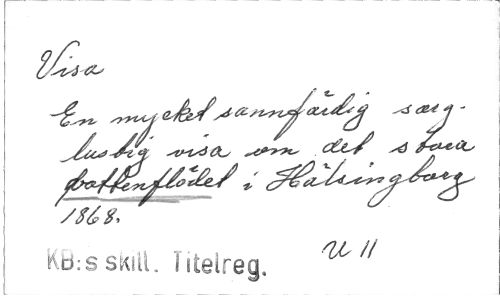 Visa
En mycket sannfärdig sorg-
lustig visa om det stora
vattenflödet i Hälsingborg
1868.
KB:s skill. Titelreg.
U 11